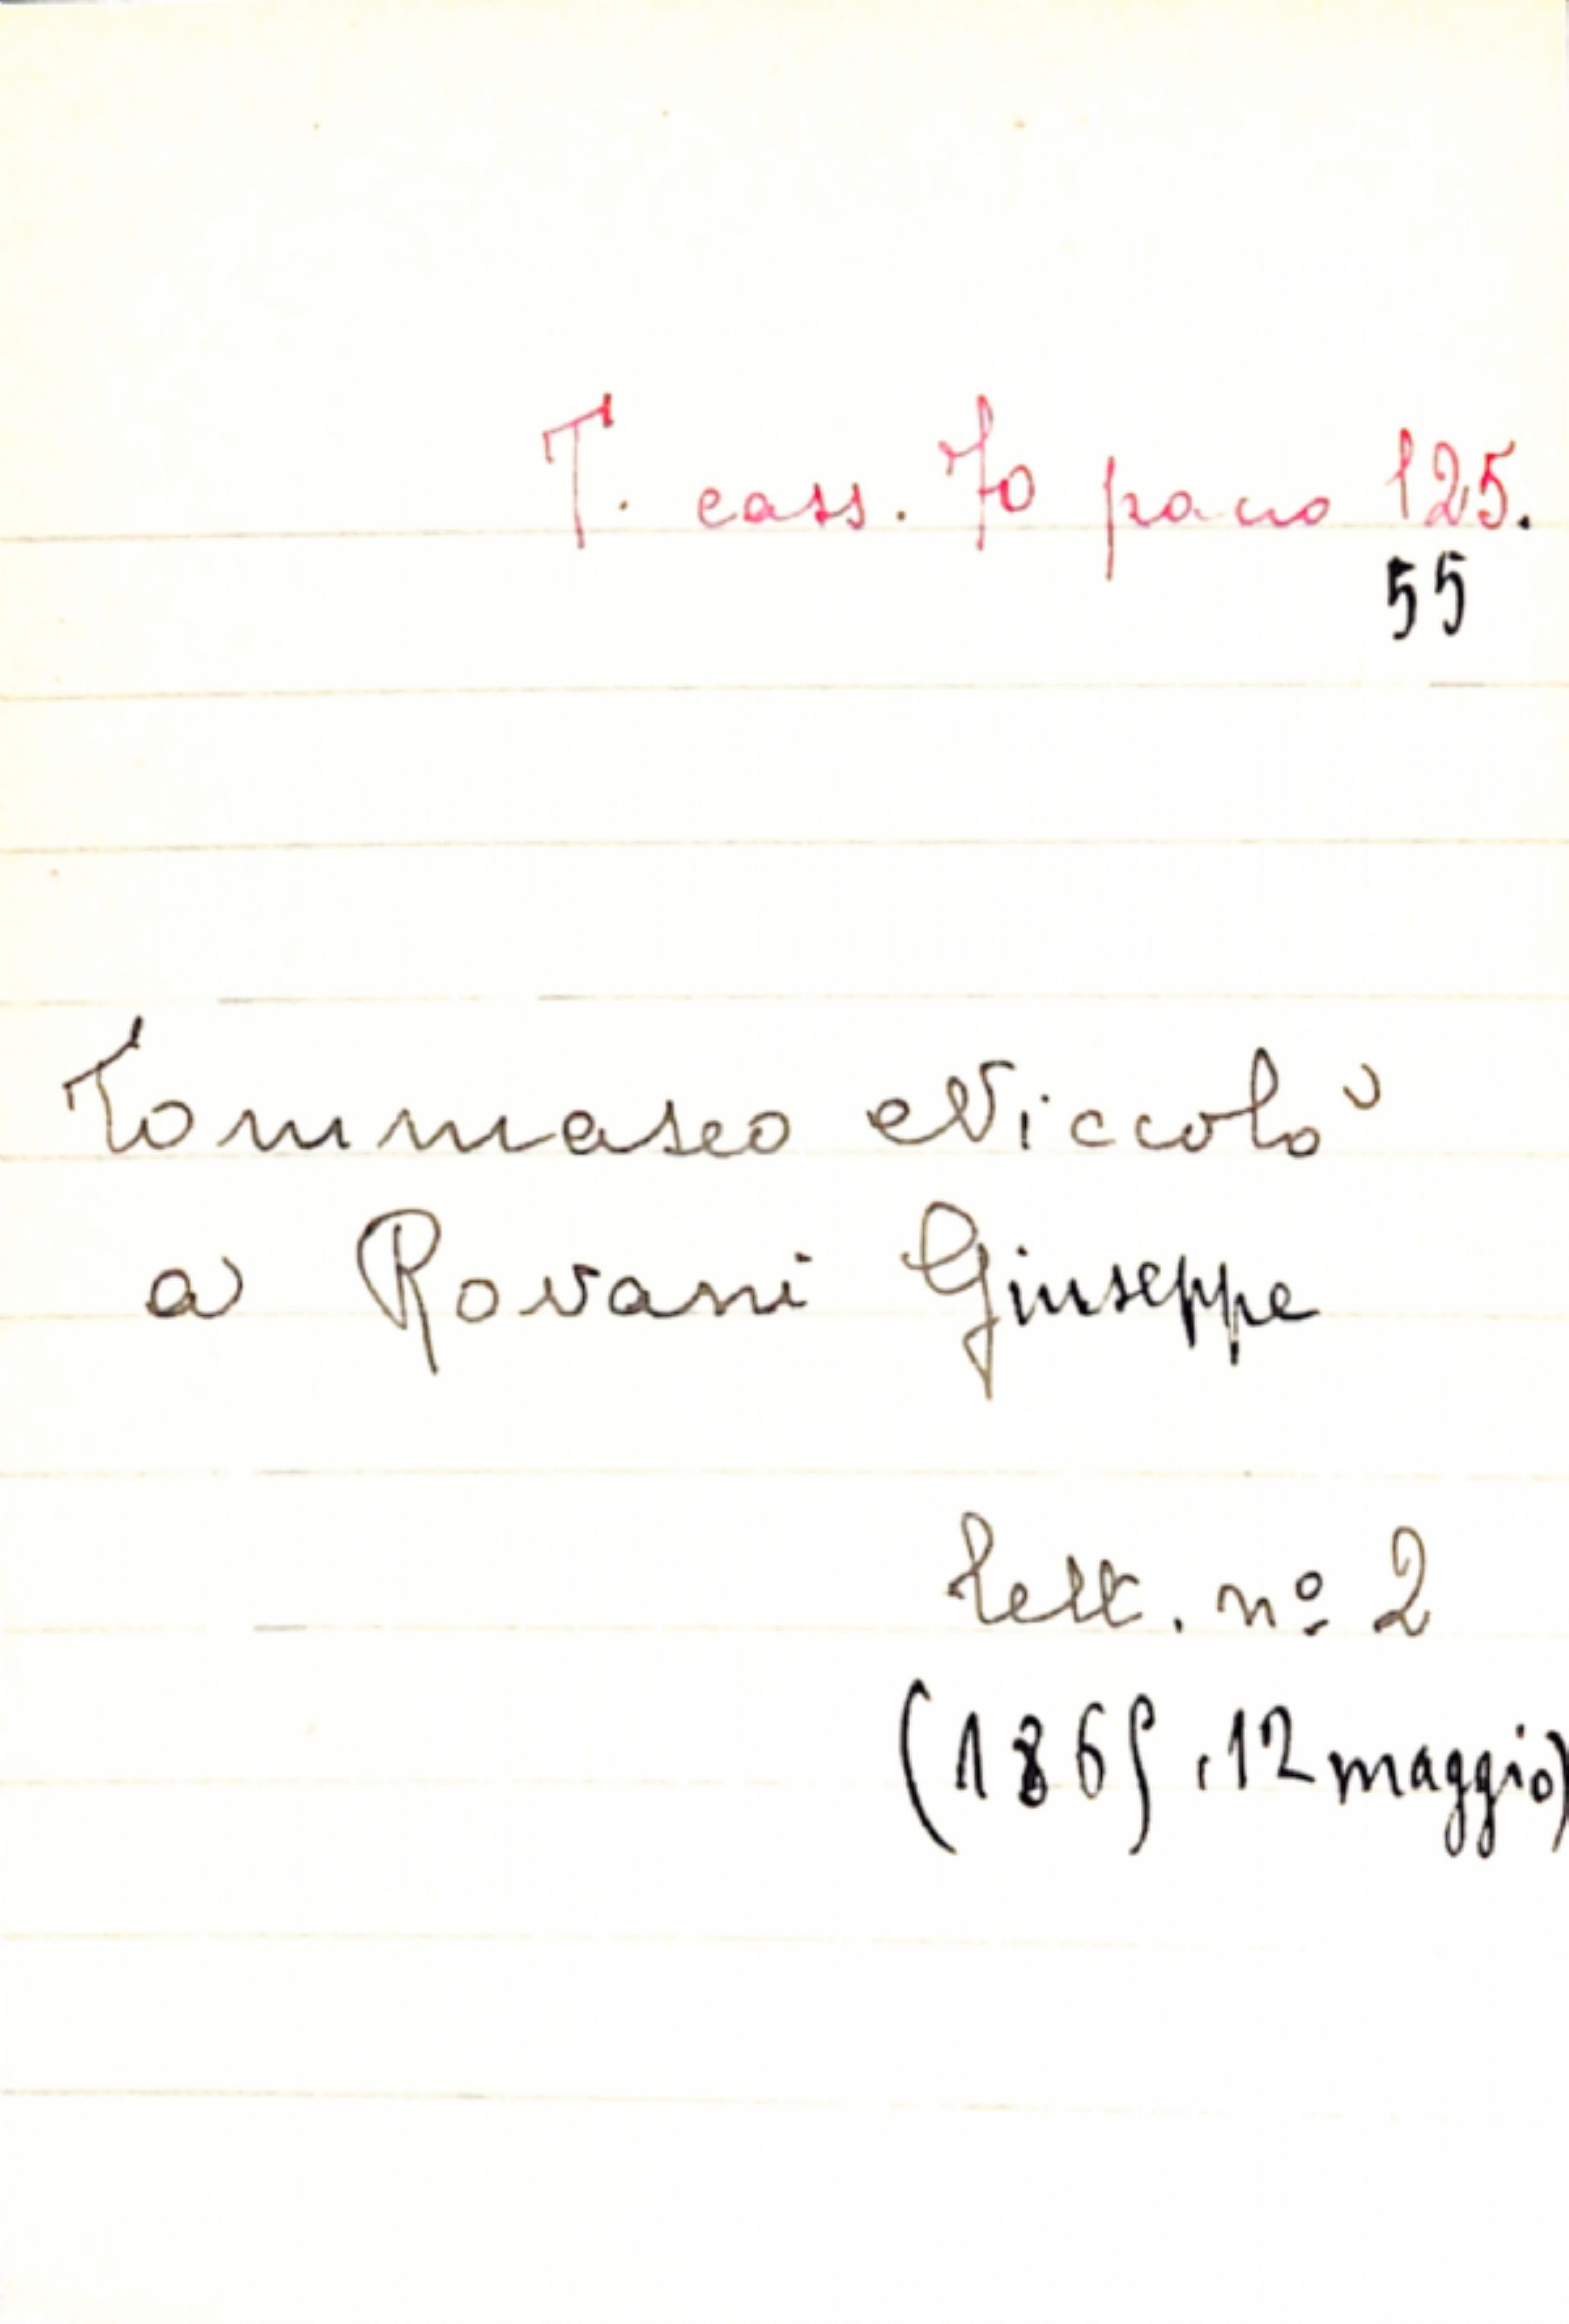 T. cass. 70 pacco 125.
55
Tommaseo Niccolò
a Rovani Giuseppe
lett. nº 2
(1865, 12 maggio)